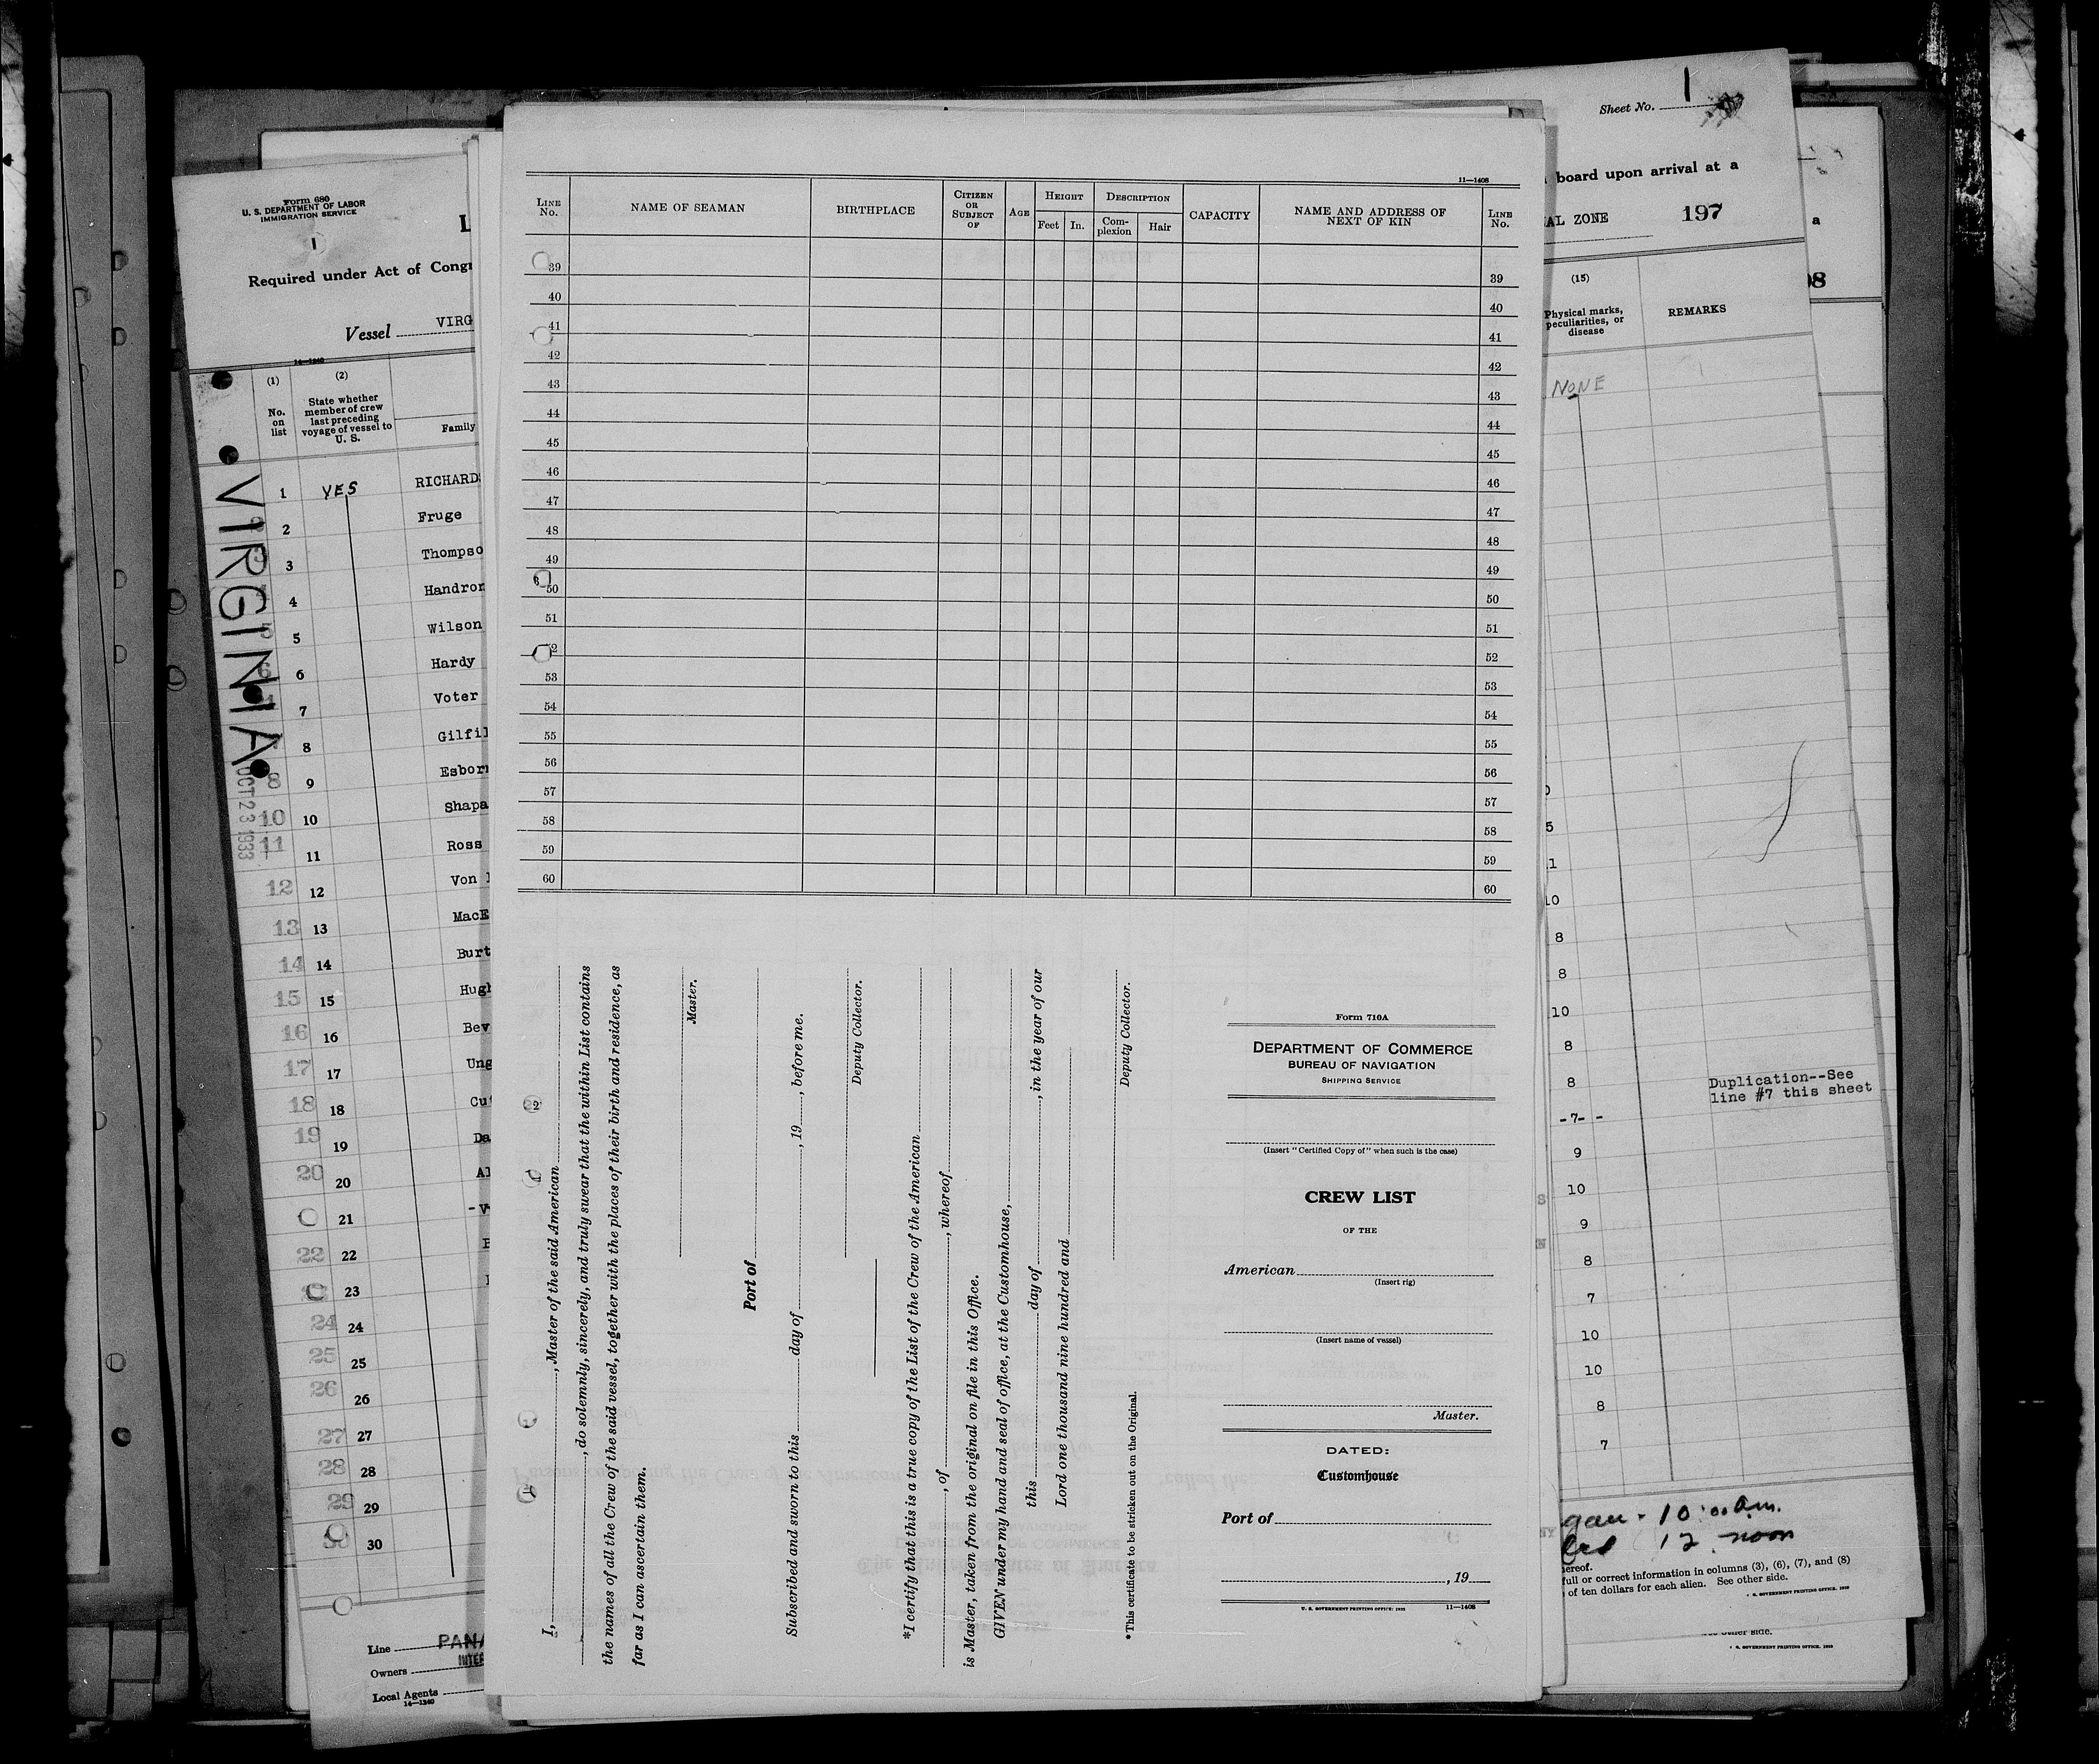 Form 680
U. S. DEPARTMENT OF LABOR
IMMIGRATION SERVICE
1
Required under Act of Congr
Vessel VIRG
14—1240
(1)
No.
on
list
(2)
State whether
member of crew
last preceding
voyage of vessel to
U. S.
Family
VIRGINIA
OCT 23 1933
1 YES RICHARDS
2 Fruge
3 Thompso
4 Handron
5 Wilson
6 Hardy
7 Voter
8 Gilfil
8 9 Esborn
10 10 Shapa
11 11 Ross
12 12 Von
13 13 MacE
14 14 Burt
15 15 Hugh
16 16 Bev
17 17 Ung
18 18 Cu
19 19 Da
20 20 Al
21
22 22
23
24 24
25 25
26 26
27 27
28 28
29 29
30 30
Line PANA
Owners INTE
Local Agents
14—1240
11—1408
LINE
No.
NAME OF SEAMAN
BIRTHPLACE
CITIZEN
OR
SUBJECT
OF
AGE
HEIGHT
Feet In.
DESCRIPTION
Com-
plexion
Hair
CAPACITY
NAME AND ADDRESS OF
NEXT OF KIN
LINE
No.
39 39
40 40
41 41
42 42
43 43
44 44
45 45
46 46
47 47
48 48
49 49
50 50
51 51
52
53 53
54 54
55 55
56 56
57 57
58 58
59 59
60 60
I, , Master of the said American
, do solemnly, sincerely, and truly swear that the within List contains
the names of all the Crew of the said vessel, together with the places of their birth and residence, as
far as I can ascertain them.
Master.
Port of
Subscribed and sworn to this day of , 19 , before me.
Deputy Collector.
*I certify that this is a true copy of the List of the Crew of the American
, of , whereof
is Master, taken from the original on file in this Office.
GIVEN under my hand and seal of office, at the Customhouse,
this day of , in the year of our
Lord one thousand nine hundred and
Deputy Collector.
*This certificate to be stricken out on the Original.
Form 710A
DEPARTMENT OF COMMERCE
BUREAU OF NAVIGATION
SHIPPING SERVICE
(Insert "Certified Copy of" when such is the case)
CREW LIST
OF THE
American
(Insert rig)
(Insert name of vessel)
Master.
DATED:
Customhouse
Port of
, 19
U. S. GOVERNMENT PRINTING OFFICE: 1932 11—1408
Sheet No. 1
board upon arrival at a
AL ZONE 197
(15)
Physical marks,
peculiarities, or
disease
REMARKS
NONE
5
10
8
8
10
8
8
Duplication--See
line #7 this sheet
-7- -
9
10
9
8
7
10
10
8
7
gan - 10:00 Am.
12 noon
hereof.
full or correct information in columns (3), (6), (7), and (8)
of ten dollars for each alien. See other side.
U. S. GOVERNMENT PRINTING OFFICE
see other side.
U. S. GOVERNMENT PRINTING OFFICE
a
08